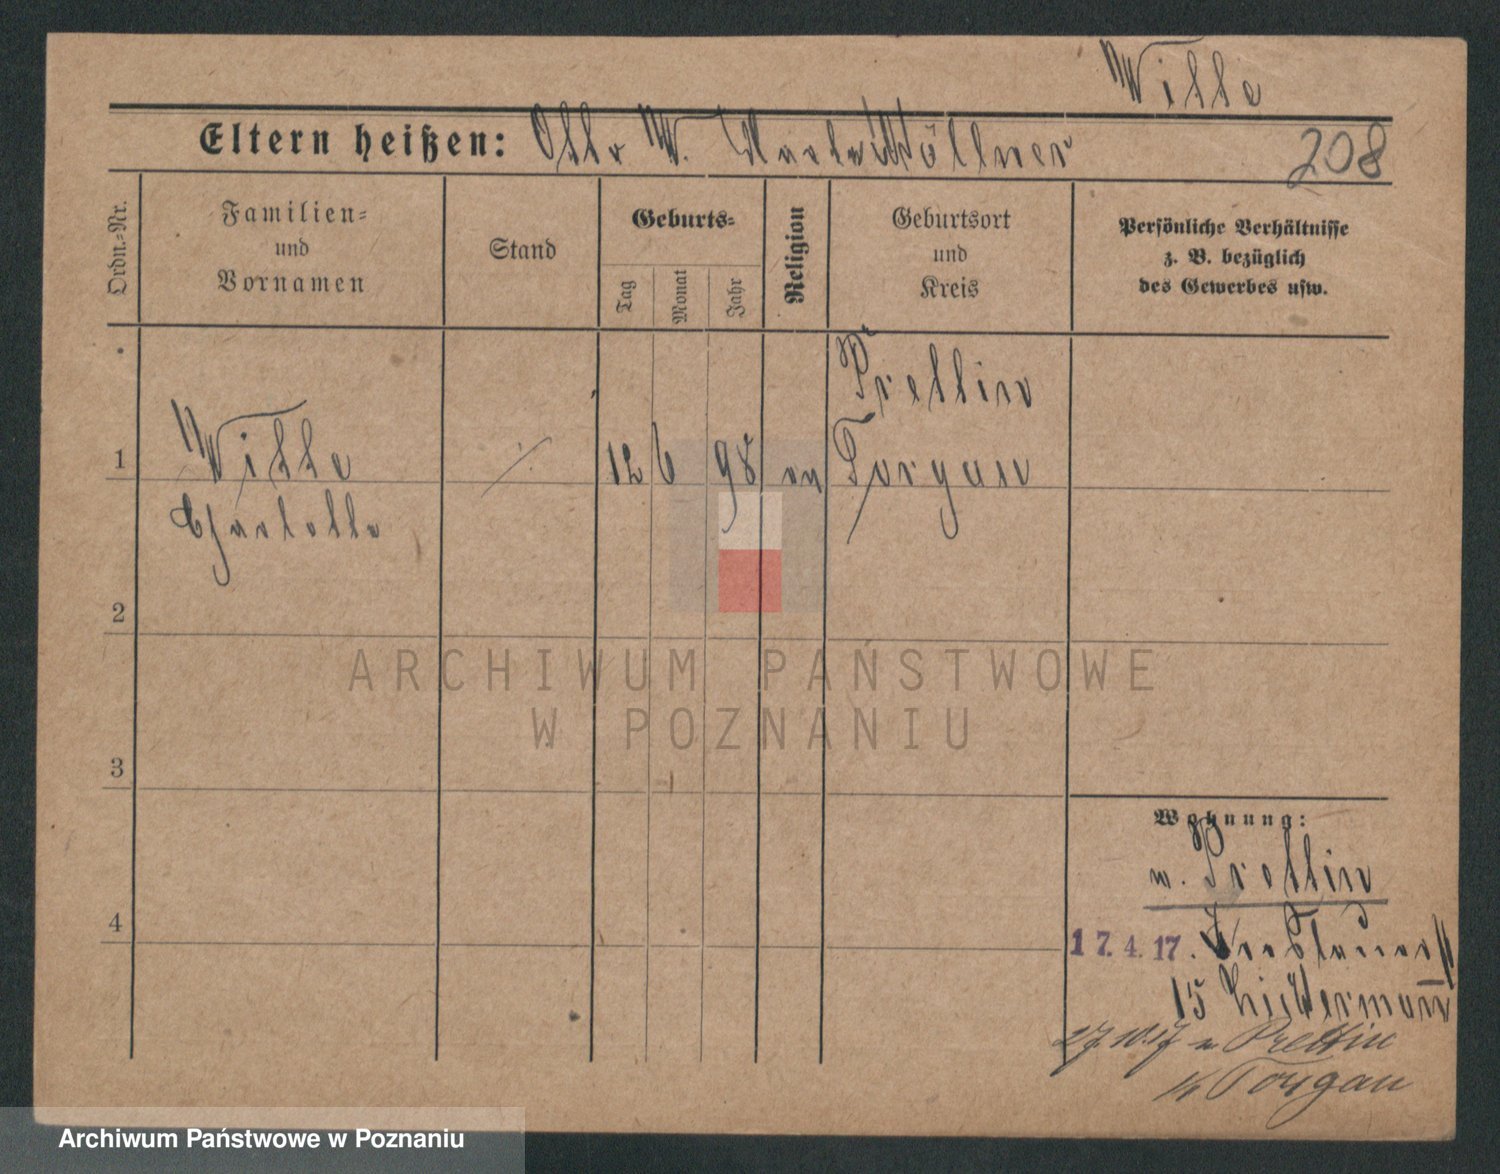 Wille
Eltern heißen: Otto W. Marta Wöllner
208
Ordn.-Nr.
Familien-
und
Vornamen
Stand
Geburts-
Tag
Monat
Jahr
Religion
Geburtsort
und
Kreis
Persönliche Verhältnisse
z. B. bezüglich
des Gewerbes usw.
Prettin
1 Wille 12 6 98 ev Torgau
Charlotte
2
ARCHIWUM PAŃSTWOWE
W POZNANIU
3
Wohnung:
n. Prettin
4
17.4.17. Breslauerstr
15
27.10.17 n Prettin
Torgau
Archiwum Państwowe w Poznaniu